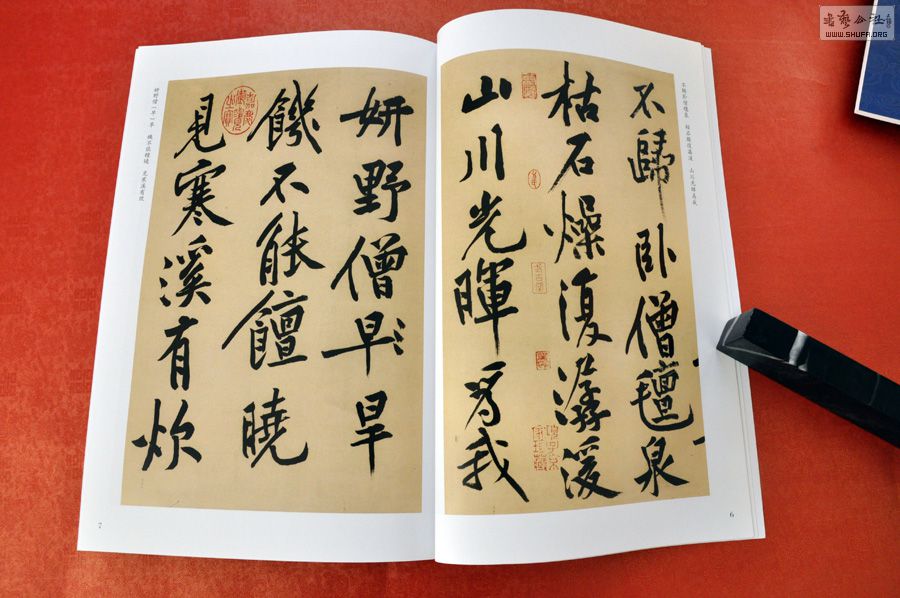 不歸卧僧氈泉
枯石燥復潺湲
山川光暉為我
妍野僧早旱
饑不能饘曉
見寒溪有炊
不歸卧僧氈泉 枯石燥復潺湲 山川光暉爲我
妍野僧旱 饑不能饘曉 見寒溪有炊
6
7
WWW.SHUFA.ORG